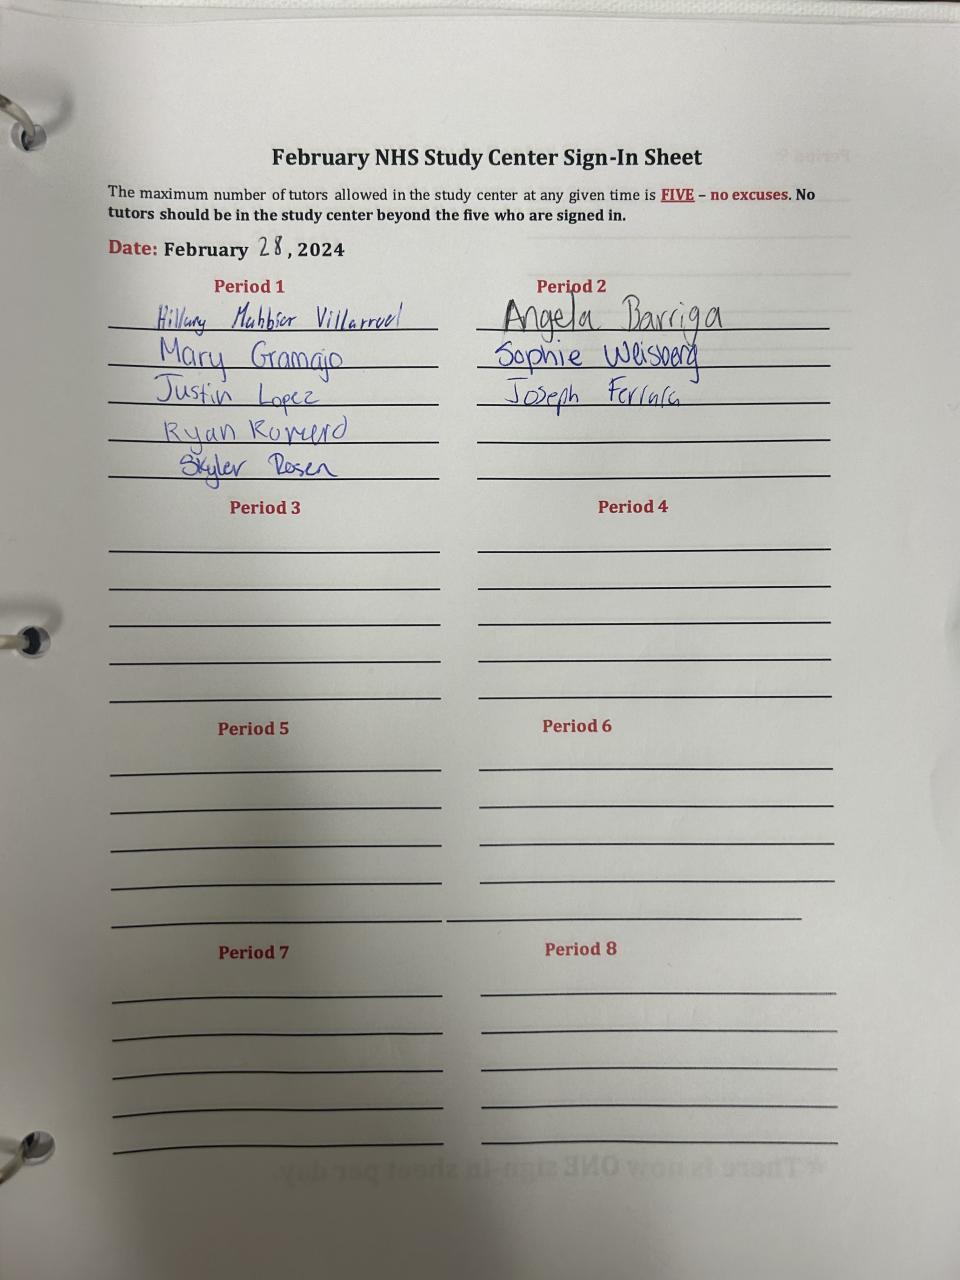 February NHS Study Center Sign-In Sheet
The maximum number of tutors allowed in the study center at any given time is FIVE – no excuses. No
tutors should be in the study center beyond the five who are signed in.
Date: February 28, 2024
Period 1
Hillary Mahbior Villarroel
Mary Gramajo
Justin Lopez
Ryan Romero
Skyler Rosen
Period 2
Angela Barriga
Sophie Weisberg
Joseph Ferrara
Period 3
Period 4
Period 5
Period 6
Period 7
Period 8
*There is now ONE sign-in sheet per day.